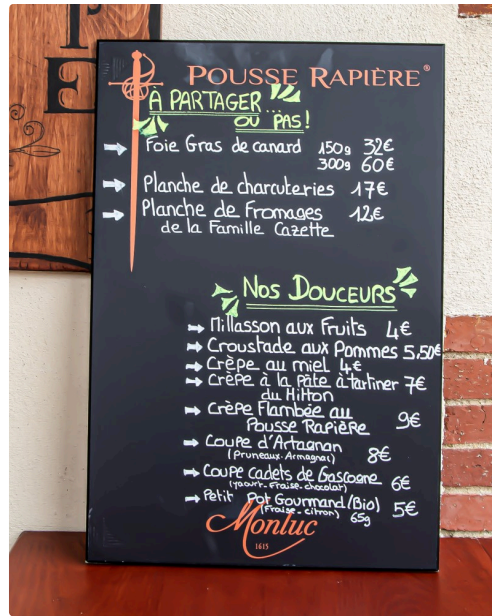 POUSSE RAPIÈRE®
À PARTAGER...
OU PAS!
Foie Gras de canard 150g 32€
300g 60€
Planche de charcuteries 17€
Planche de Fromages 12€
de la Famille Cazette
Nos Douceurs
Millasson aux Fruits 4€
Croustade aux Pommes 5,50€
Crêpe au miel 4€
Crêpe à la pâte à tartiner 7€
du Hitton
Crêpe Flambée au
Pousse Rapière 9€
Coupe d'Artagnan
(Pruneaux-Armagnac) 8€
Coupe cadets de Gascogne 6€
(yaourt-Fraise-chocolat)
Petit Pot Gourmand (Bio) 5€
(Fraise-citron) 65g
Monluc
1615